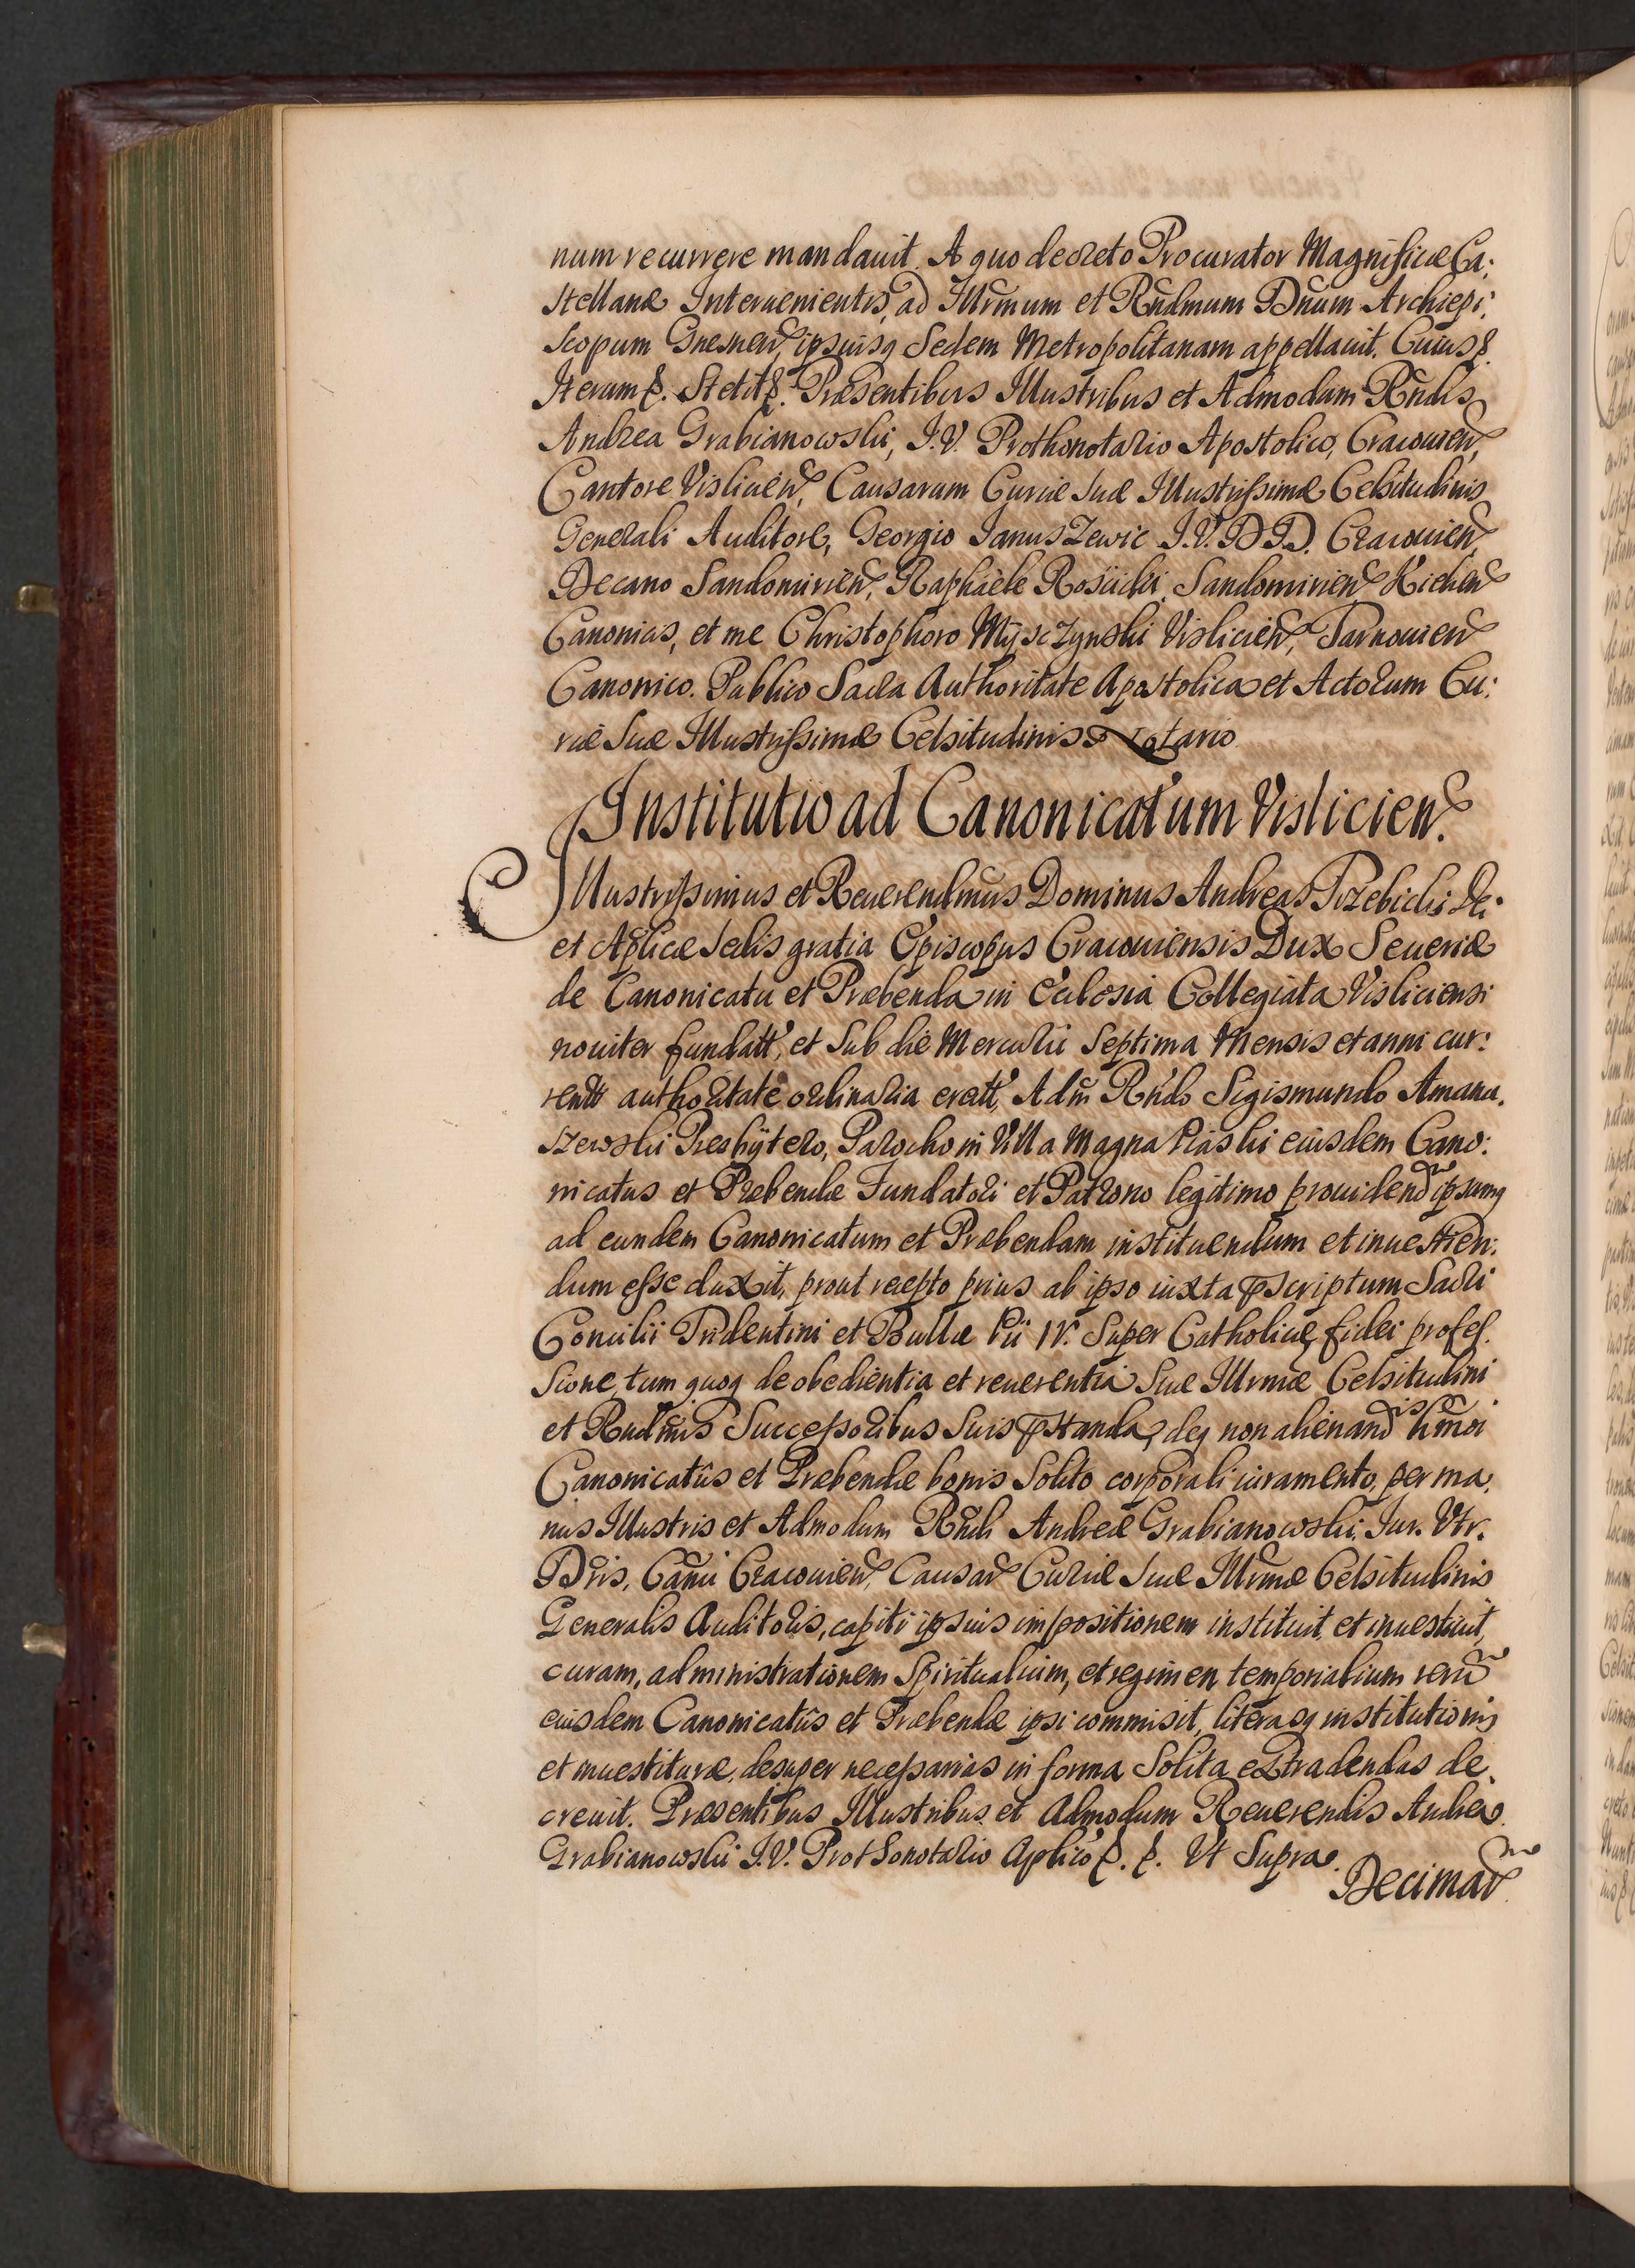 num recurrere mandauit. A quo decreto Procurator Magnificæ Ca:
stellanæ Interuenientis, ad Illrmum et Rndmum Dnum Archiepi:
scopum Gnesnen, ipsiusq Sedem Metropolitanam appellauit. Cuius &.
Iterum &. Stetit &. Præsentibus Illustribus et Admodum Rndis
Andrea Grabianowski, I.V. Prothonotario Apostolico, Cracouien,
Cantore Vislicien, Causarum Curiæ Suæ Illustrissimæ Celsitudinis
Generali Auditore, Georgio Januszewic I.V.D D.D. Cracouien,
Decano Sandomirien, Raphaele Roscicki, Sandomirien Kielcen
Canonicis, et me Christophoro Mysczynski Vislicien, Tarnouien
Canonico. Publico Sacra Authoritate Apostolica et Actorum Cu:
riæ Suæ Illustrissimæ Celsitudinis Notario.
Institutio ad Canonicatum Vislicien.
Illustrissimus et Reuerendmus Dominus Andreas Trzebicki Dei
et Aplicæ Sedis gratia Episcopus Cracouiensis Dux Seueriæ
de Canonicatu et Præbenda in Ecclesia Collegiata Visliciensi
nouiter fundatt, et Sub die Mercurii Septima Mensis et anni cur:
rentt authoritate ordinaria erett, Adm Rndo Sigismundo Amanu.
szewski Presbytero, Parocho in Villa Magna Piaski eiusdem Cano:
nicatus et Præbendæ Fundatori et Patrono legitimo prouidend ipsumq
ad eundem Canonicatum et Præbendam instituendum et inuestien:
dum esse duxit, prout recepto prius ab ipso iuxta pscriptum Sacri
Concilii Tridentini et Bullæ Pii IV. Super Catholicæ fidei profes.
sione, tum quoq de obedientia et reuerentia Suæ Illrmæ Celsitudini
et Rndmis Successoribus Suis pstanda, deq non alienand hmoi
Canonicatûs et Præbendæ bonis Solito corporali iuramento, per ma.
nus Illustris et Admodum Rndi Andreæ Grabianowski, Jur. Vtr.
Dris, Canci Cracouien, Causar Curiæ Suæ Illrmæ Celsitudinis
Generalis Auditoris, capiti ipsius impositionem instituit, et inuestiuit,
curam, administrationem Spiritualium, et regimen temporialium reru
eiusdem Canonicatûs et Præbendæ ipsi commisit, literasq institutionis
et inuestituræ, desuper necessarias in forma Solita extradendas de.
creuit. Præsentibus Illustribus et Admodum Reuerendis Andrea
Grabianowski I.V. Prothonotario Aplico &. &. Vt Supra.
Decimar